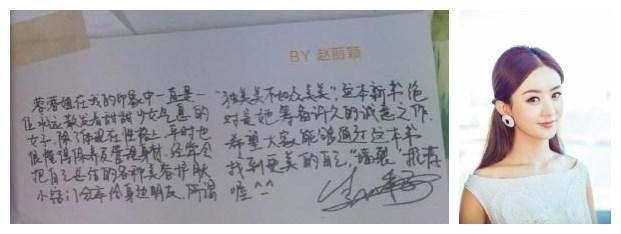 BY 赵丽颖
蓉蓉姐在我的印象中一直是一
位永远散发着甜甜少女气息的
女子,除了体现在性格上,平时也
很懂得保养及管理身材,经常会
把自己总结的各种美容护肤
小窍门分享给身边朋友。所谓
“独美美不如众美美”这本新书绝
对是她筹备许久的诚意之作,
希望大家能够通过这本书
找到更美的自己,“墙裂”推荐
喔^^